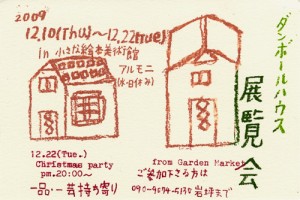 2009
12.10(Thu)〜12.22(tue)
in 小さな絵本美術館
アルモニ
(水・日休み)
ダンボールハウス
展覧会
12.22(Tue.)
Christmas party
pm.20:00〜
一品・一芸持ち寄り
from Garden Market
ご参加下さる方は
岩坪まで